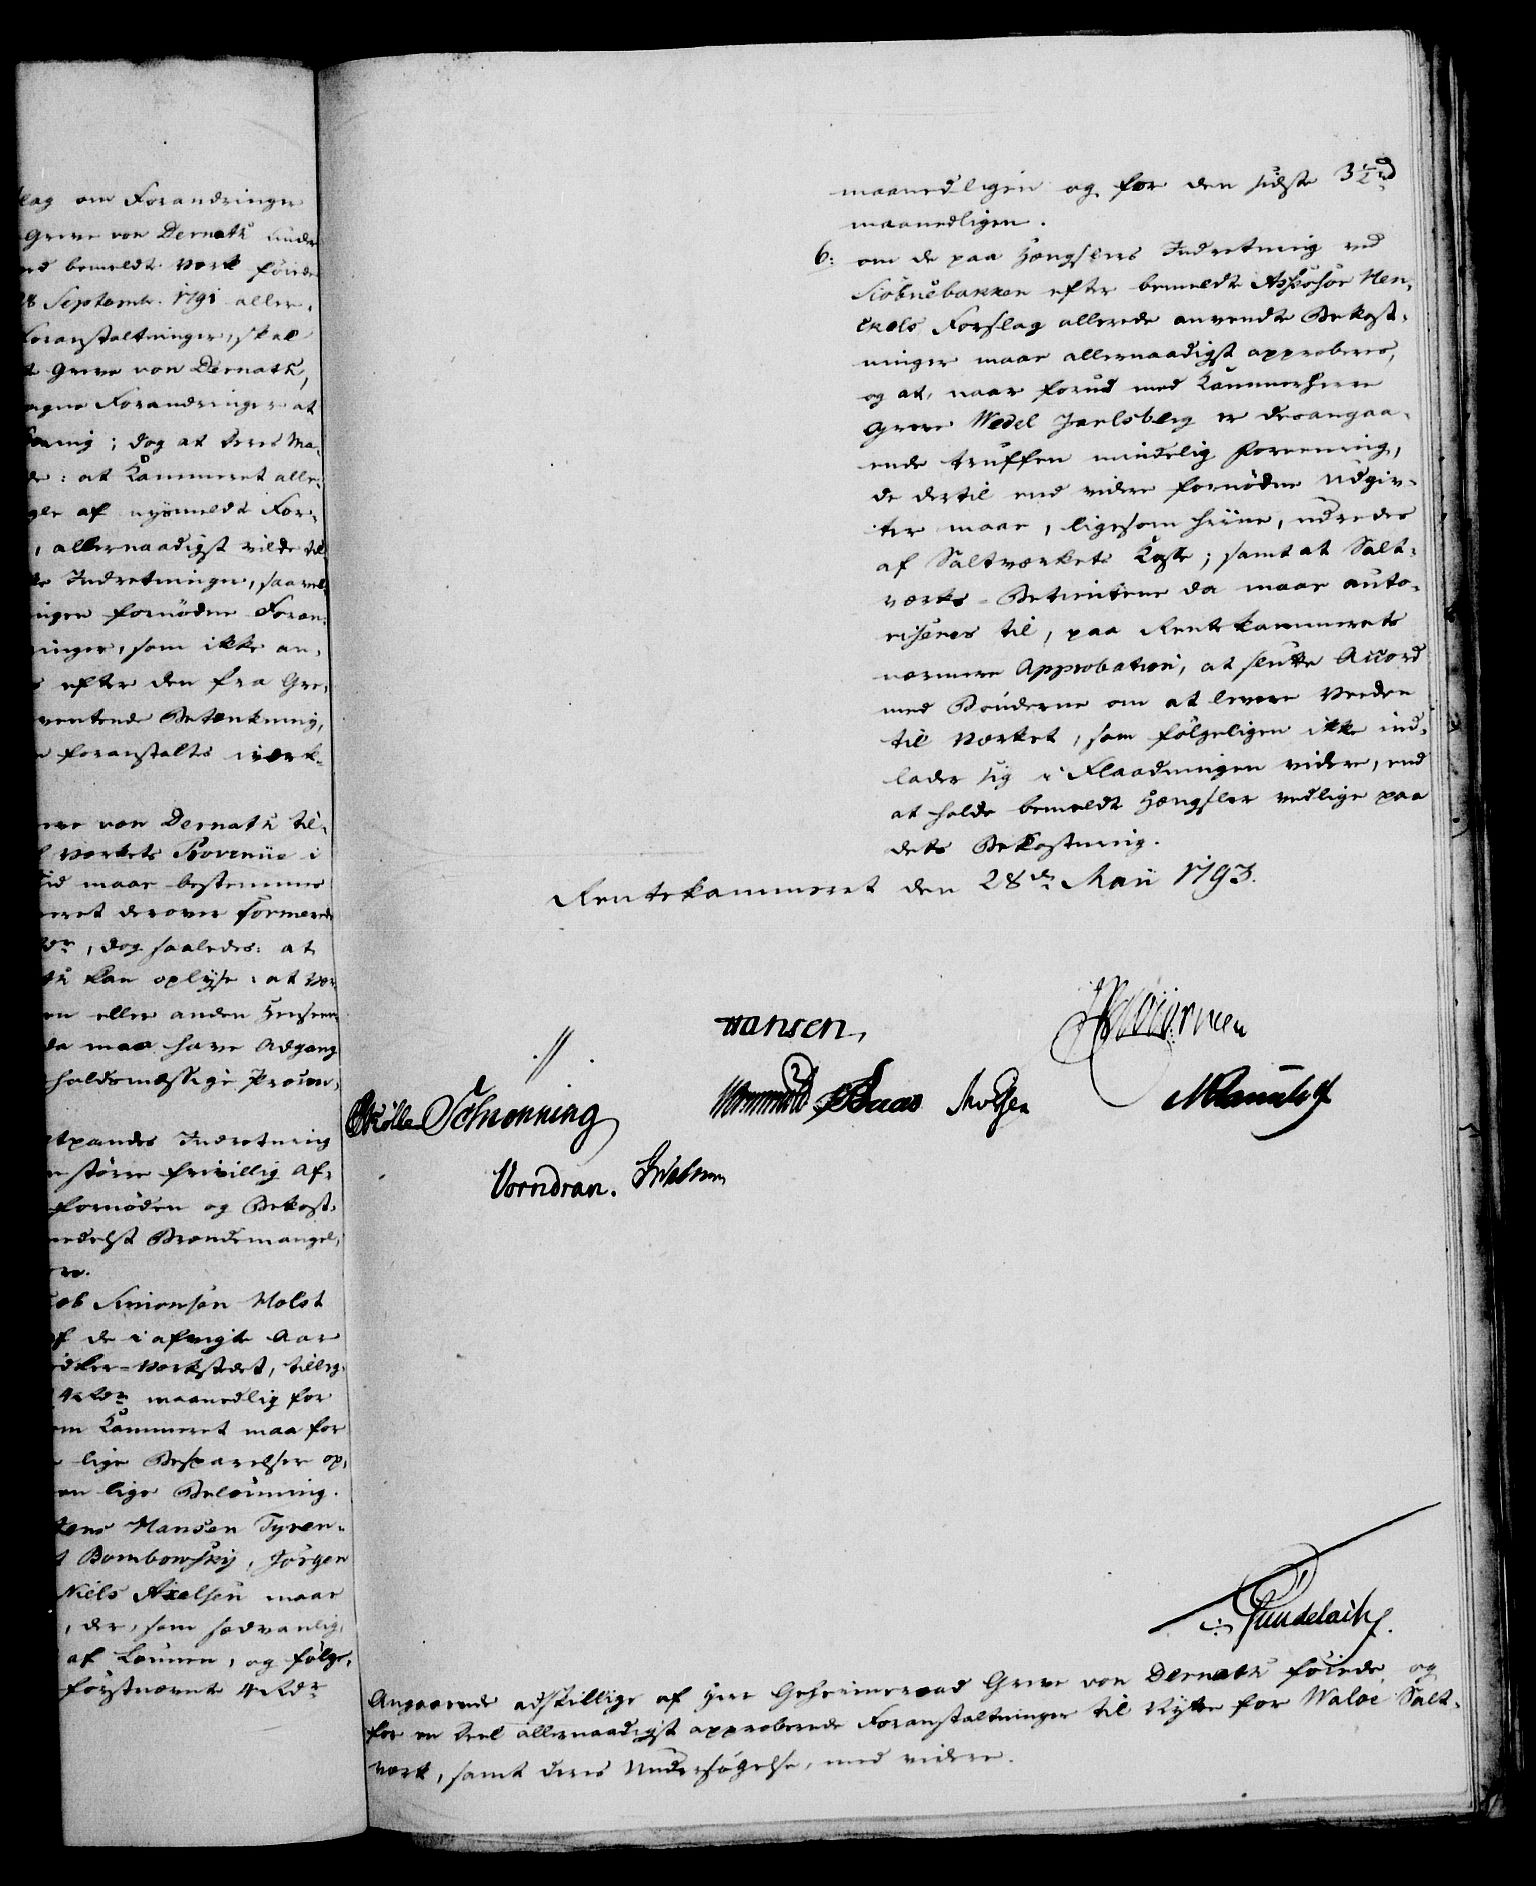 lag om Forandringer
Greve von Dernath under
ved bemeldte Værk föiede
28 Septembr. 1791 aller-
Foranstaltninger, skal
Greve von Dernath,
tagne Forandringer at
; dog at deres Ma-
de: at Kammeret alle-
gle af nysmeldte For-
, allernaadigst vilde til
Indretninger, saavel
ningen fornödne Foran-
ninger, som ikke an-
efter den fra Gre-
ventende Betænkning,
foranstalts iværk-
von Dernath til-
Værkets Provenüe i
Tid maae bestemmes
meret derover formerede
Rdr, dog saaledes: at
kan oplyse, at Vær-
en eller anden Henseen-
da maa have Adgang
holdsmæssige Procen-
Indretning
större frivillig Af-
fornöden og Bekost-
medelst Brændemangel,
cob Simonsen Holst
af de i afvigte Aar
ödker-Værkstedet, tillæg-
4 Rdr maanedlig for
om Kammeret maa for
lige Besparelser op-
en lige Belönning.
Jens Hansen Tyren-
Bombowsky, Jörgen
Niels Axelsen maae
, der, som sædvanlig,
af Lönnen, og fölge-
förstnævnte 4 Rdr
maanedligen og for den sidste 3½ Rd
maanedligen.
6: om de paa Hængslers Indretning ved
Skobuebakken efter bemeldte Assessor Hen-
ckels Forslag allerede anvendte Bekost-
ninger maae allernaadigst approberes,
og at, naar forud med Kammerherre
Greve Wedel Jarlsberg er desangaa-
ende truffen mindelig Foreening,
de dertil end videre fornödne Udgiv-
ter maae, ligesom hine, udredes
af Saltværkets Casse; samt at Salt-
værks-Betienterne da maae auto-
riseres til, paa Rentekammerets
nærmere Approbation, at slutte Accord
med Bönderne om at levere Veeden
til Værket, som fölgeligen ikke ind-
lader sig i Flaadningen videre, end
at holde bemeldte Hængsler vedlige paa
dets Bekostning.
Rentekammeret den 28de Maii 1793.
Hansen,
Schrønning
Vorndran.
Gundelach.
Angaaende adskillige af Herr Geheimeraad Greve von Dernath föiede og
for en Deel allernaadigst approberede Foranstaltninger til Nytte for Waløe Salt-
værk, samt deres Undersögelse, med videre.